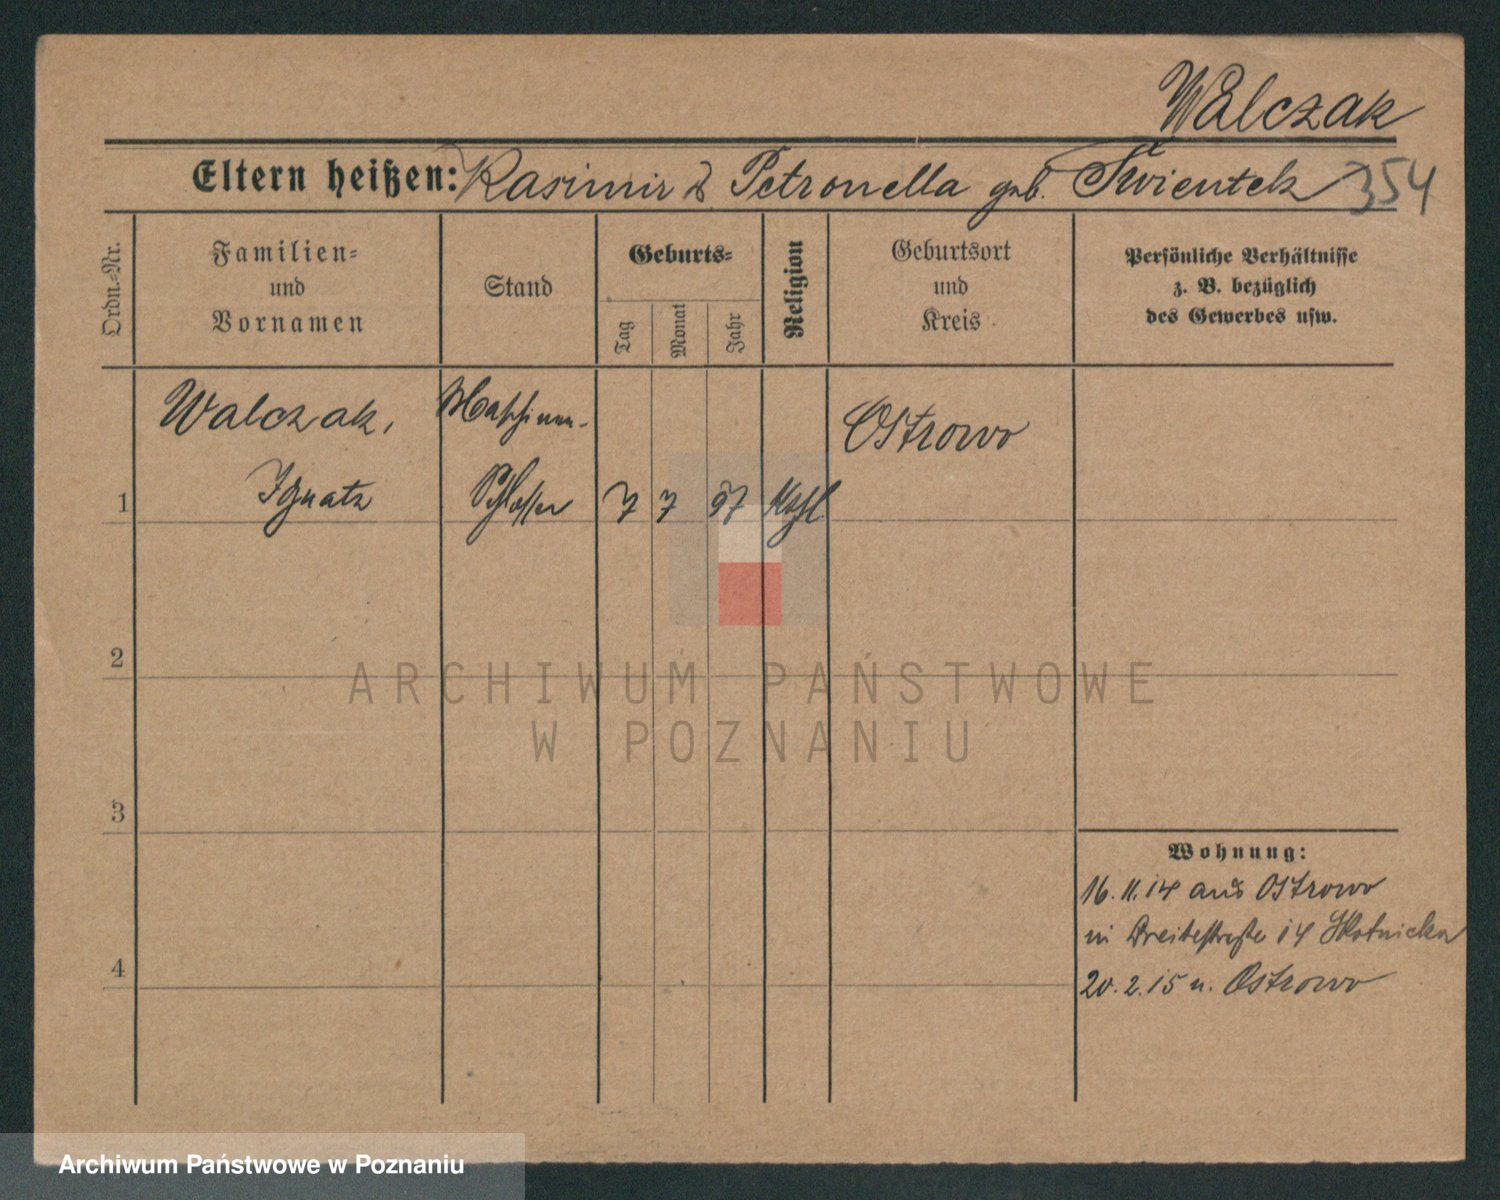 Walczak
Eltern heißen: Kasimir & Petronella geb. Swientek 354
Ordn.-Nr.
Familien-
und
Vornamen
Stand
Geburts-
Tag
Monat
Jahr
Religion
Geburtsort
und
Kreis
Persönliche Verhältnisse
z. B. bezüglich
des Gewerbes usw.
Walczak,
Ignatz
Maschinen-
Schlosser
7 7 97 kthl
Ostrowo
1
2
3
4
ARCHIWUM PAŃSTWOWE
W POZNANIU
Wohnung:
16.11.14 aus Ostrowo
in Breitestraße 14 Skotnicka
20.2.15 n. Ostrowo
Archiwum Państwowe w Poznaniu